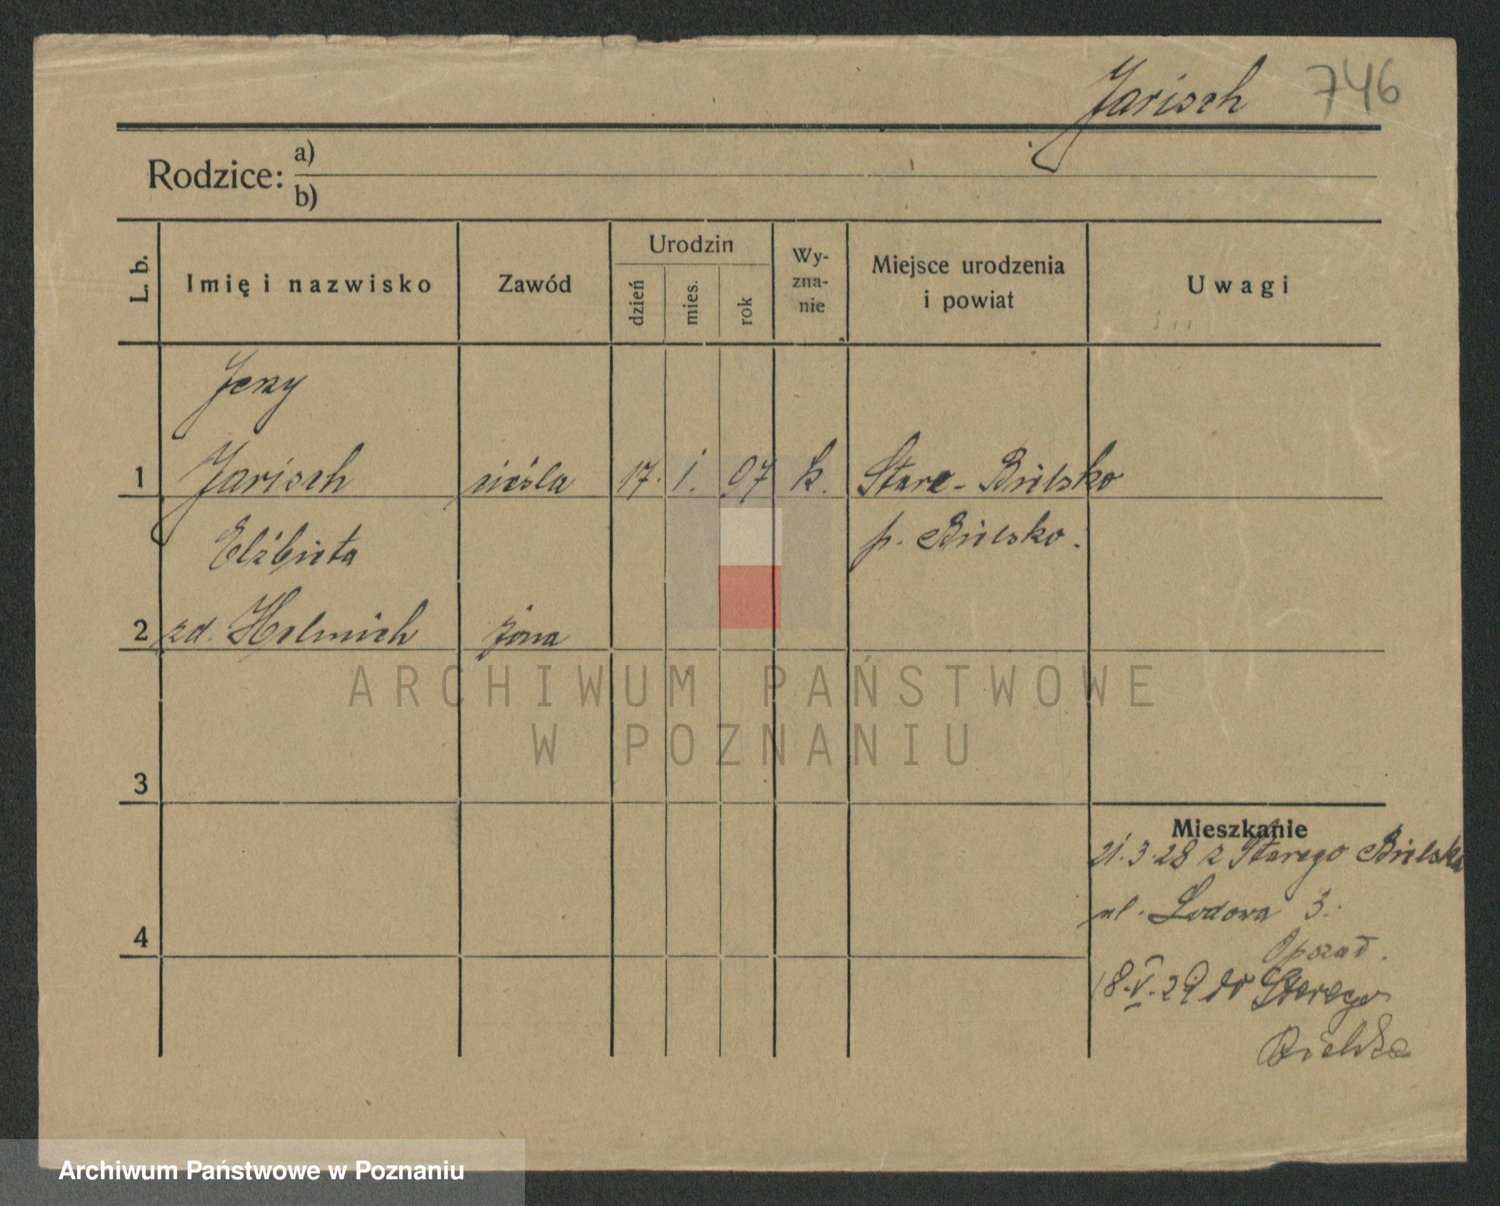 Jarisch 746
Rodzice: a)
b)
L. b. Imię i nazwisko Zawód Urodzin dzień mies. rok Wy-zna-nie Miejsce urodzenia i powiat Uwagi
Jerzy
1 Jarisch cieśla 17. I. 07 k. Stare-Bielsko
Elżbieta p. Bielsko.
2 zd. Helmich żona
ARCHIWUM PAŃSTWOWE
W POZNANIU
3
Mieszkanie
21.3.28 z Starego Bielska
ul. Lodowa 3.
4
18.V.29 do Starego
Bielska
Archiwum Państwowe w Poznaniu